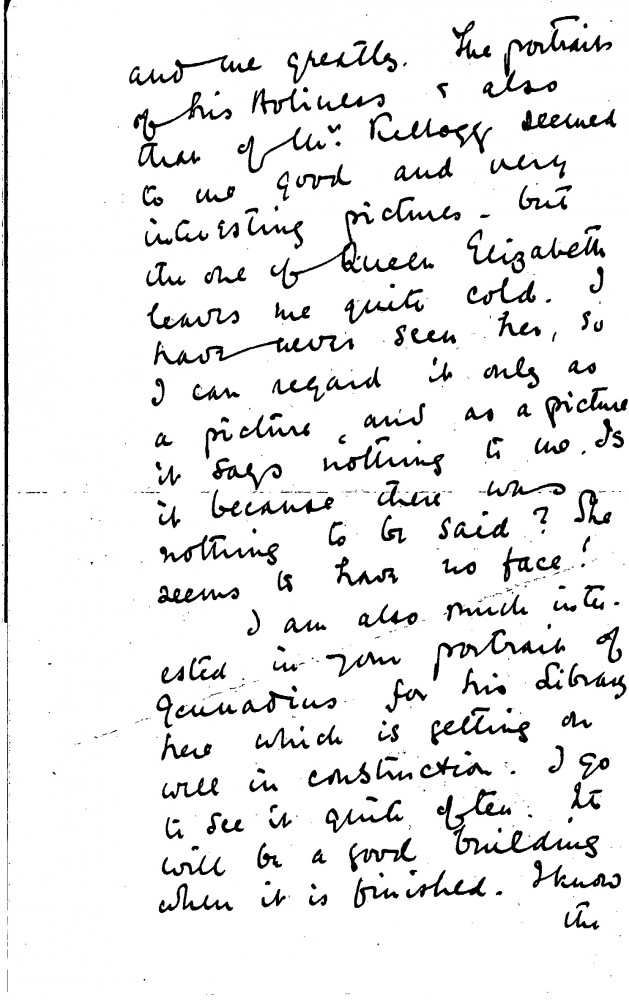 and me greatly. The portraits
of his Holiness & also
that of Mr. Kellogg seemed
to me good and very
interesting pictures - but
the one of Queen Elizabeth
leaves me quite cold. I
have never seen her, so
I can regard it only as
a picture, and as a picture
it says nothing to me. Is
it because there was
nothing to be said? She
seems to have no face!
I am also much inter-
ested in your portrait of
Gennadius for his Library
here which is getting on
well in construction. I go
to see it quite often. It
will be a good building
when it is finished. I know
the